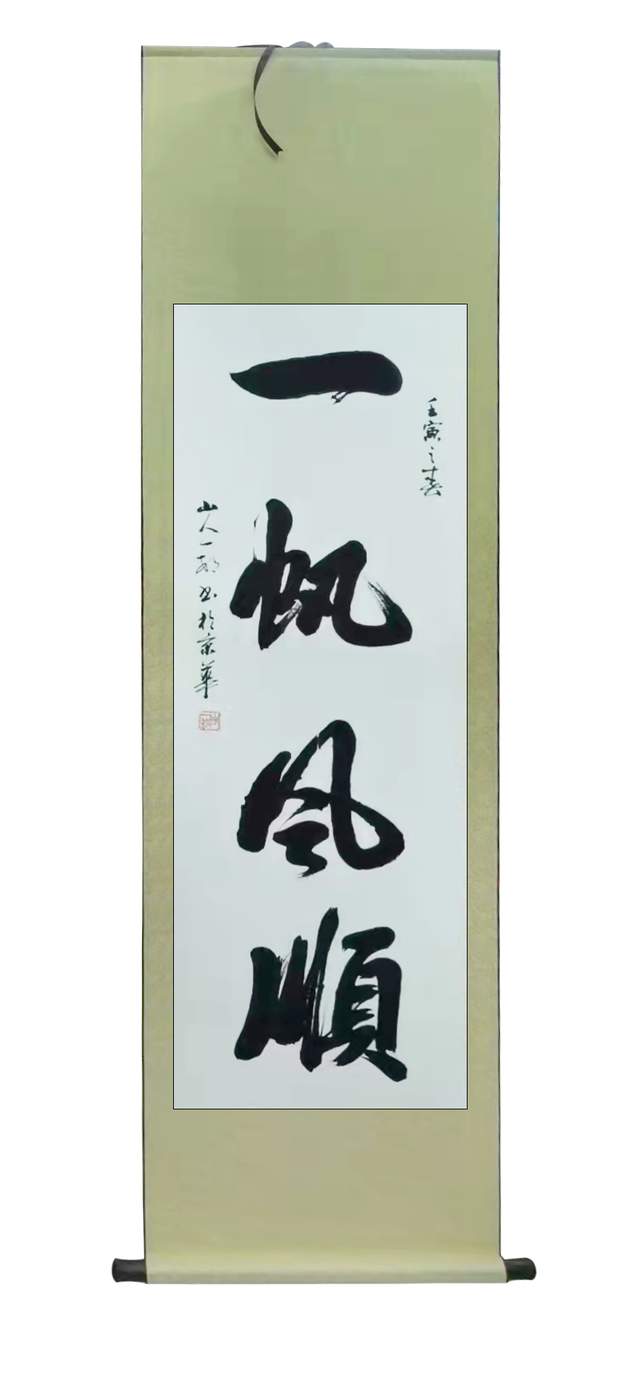 壬寅之春
一帆风顺
山人一郎书於京華